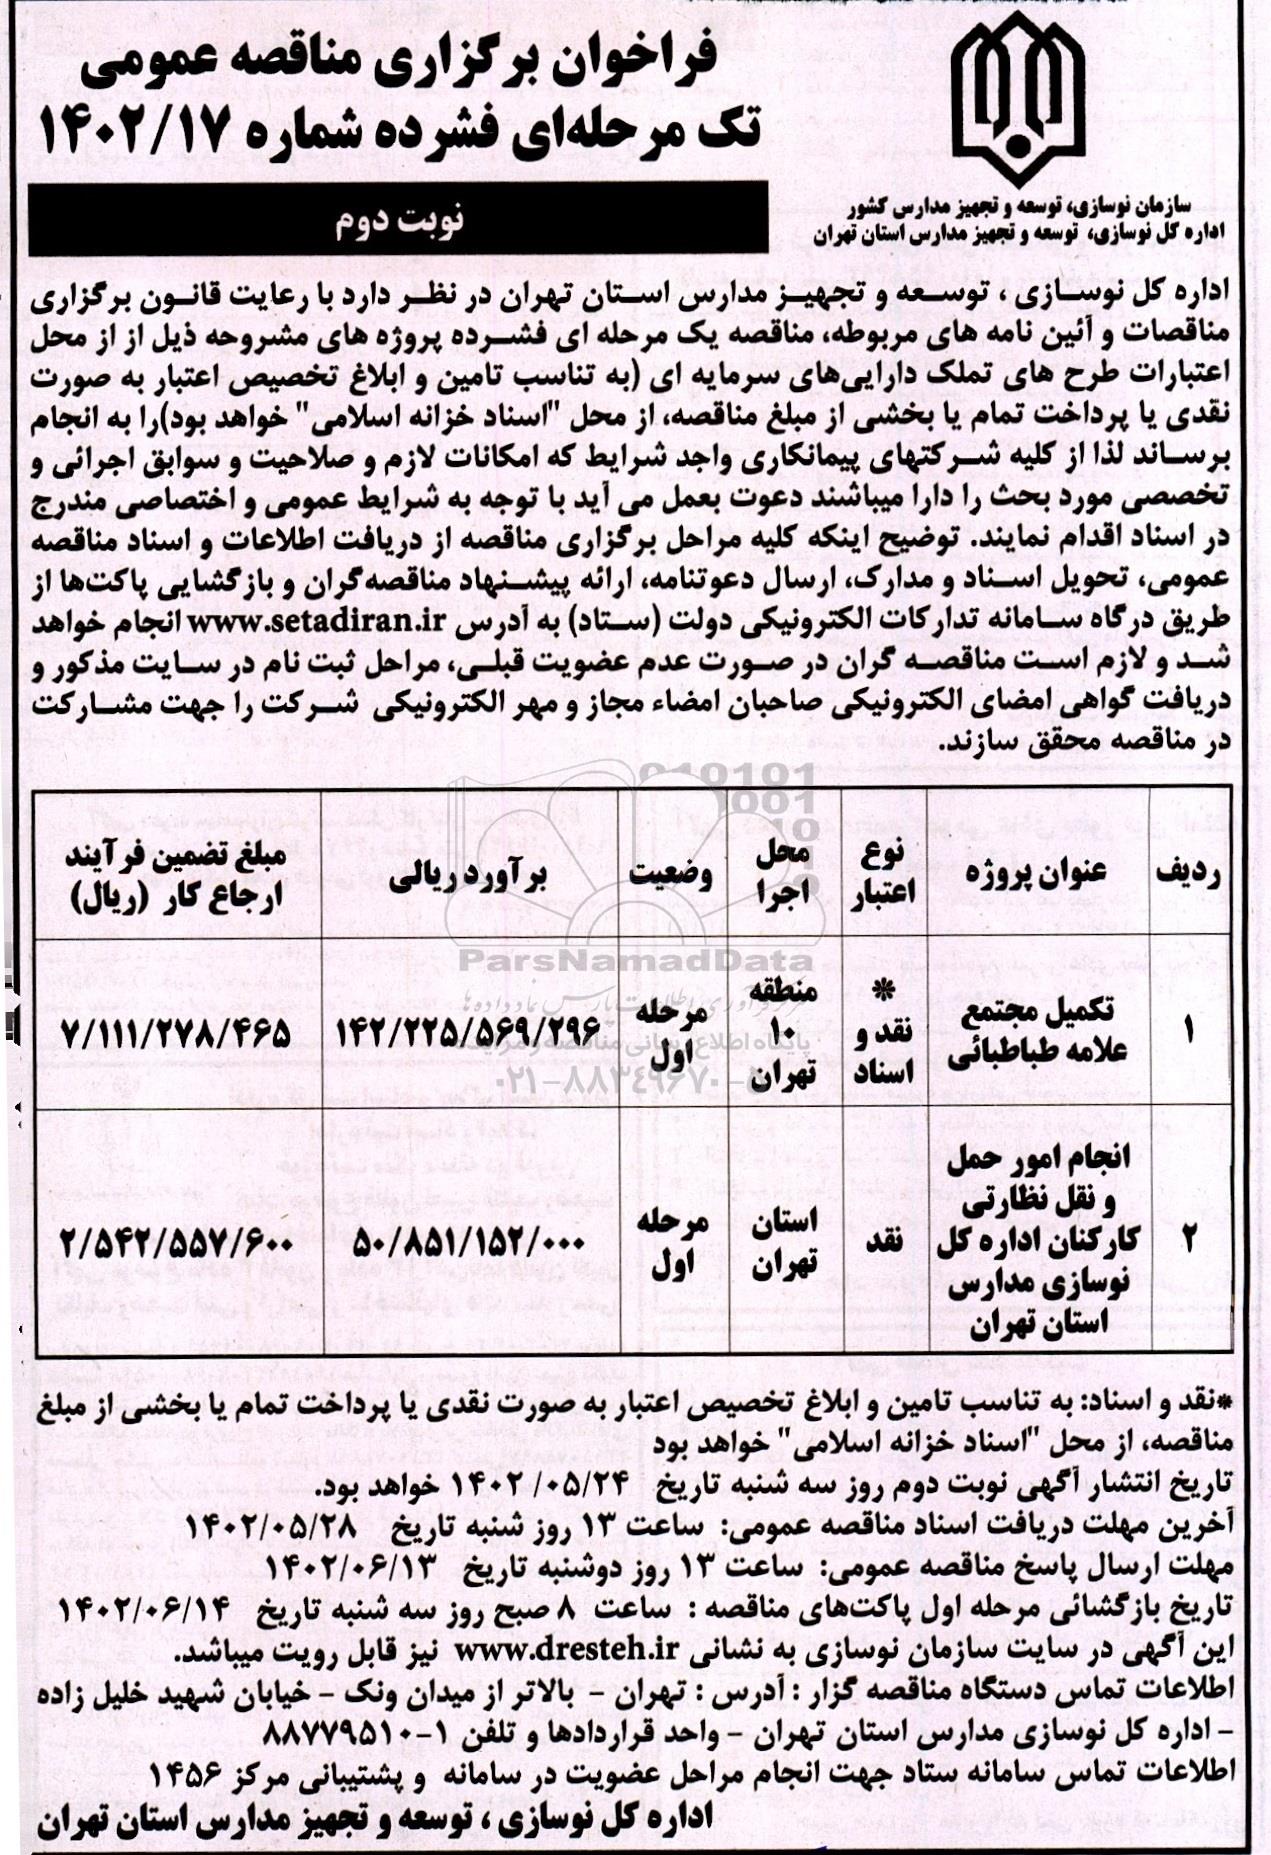 فراخوان برگزاری مناقصه عمومی
تک مرحله‌ای فشرده شماره ۱۴۰۲/۱۷
نوبت دوم
سازمان نوسازی، توسعه و تجهیز مدارس کشور
اداره کل نوسازی، توسعه و تجهیز مدارس استان تهران
اداره کل نوسازی ، توسعه و تجهیز مدارس استان تهران در نظر دارد با رعایت قانون برگزاری
مناقصات و آئین نامه های مربوطه، مناقصه یک مرحله ای فشرده پروژه های مشروحه ذیل از از محل
اعتبارات طرح های تملک دارایی‌های سرمایه ای (به تناسب تامین و ابلاغ تخصیص اعتبار به صورت
نقدی یا پرداخت تمام یا بخشی از مبلغ مناقصه، از محل "اسناد خزانه اسلامی" خواهد بود)را به انجام
برساند لذا از کلیه شرکتهای پیمانکاری واجد شرایط که امکانات لازم و صلاحیت و سوابق اجرائی و
تخصصی مورد بحث را دارا میباشند دعوت بعمل می آید با توجه به شرایط عمومی و اختصاصی مندرج
در اسناد اقدام نمایند. توضیح اینکه کلیه مراحل برگزاری مناقصه از دریافت اطلاعات و اسناد مناقصه
عمومی، تحویل اسناد و مدارک، ارسال دعوتنامه، ارائه پیشنهاد مناقصه‌گران و بازگشایی پاکت‌ها از
طریق درگاه سامانه تدارکات الکترونیکی دولت (ستاد) به آدرس www.setadiran.ir انجام خواهد
شد و لازم است مناقصه گران در صورت عدم عضویت قبلی، مراحل ثبت نام در سایت مذکور و
دریافت گواهی امضای الکترونیکی صاحبان امضاء مجاز و مهر الکترونیکی شرکت را جهت مشارکت
در مناقصه محقق سازند.
ردیف | عنوان پروژه | نوع اعتبار | محل اجرا | وضعیت | برآورد ریالی | مبلغ تضمین فرآیند ارجاع کار (ریال)
۱ | تکمیل مجتمع علامه طباطبائی | * نقد و اسناد | منطقه ۱۰ تهران | مرحله اول | ۱۴۲/۲۲۵/۵۶۹/۲۹۶ | ۷/۱۱۱/۲۷۸/۴۶۵
۲ | انجام امور حمل و نقل نظارتی کارکنان اداره کل نوسازی مدارس استان تهران | نقد | استان تهران | مرحله اول | ۵۰/۸۵۱/۱۵۲/۰۰۰ | ۲/۵۴۲/۵۵۷/۶۰۰
ParsNamadData
۰۲۱-۸۸۳۴۹۶۷۰-۵
*نقد و اسناد: به تناسب تامین و ابلاغ تخصیص اعتبار به صورت نقدی یا پرداخت تمام یا بخشی از مبلغ
مناقصه، از محل "اسناد خزانه اسلامی" خواهد بود
تاریخ انتشار آگهی نوبت دوم روز سه شنبه تاریخ ۱۴۰۲/۰۵/۲۴ خواهد بود.
آخرین مهلت دریافت اسناد مناقصه عمومی: ساعت ۱۳ روز شنبه تاریخ ۱۴۰۲/۰۵/۲۸
مهلت ارسال پاسخ مناقصه عمومی: ساعت ۱۳ روز دوشنبه تاریخ ۱۴۰۲/۰۶/۱۳
تاریخ بازگشائی مرحله اول پاکت‌های مناقصه : ساعت ۸ صبح روز سه شنبه تاریخ ۱۴۰۲/۰۶/۱۴
این آگهی در سایت سازمان نوسازی به نشانی www.dresteh.ir نیز قابل رویت میباشد.
اطلاعات تماس دستگاه مناقصه گزار : آدرس : تهران - بالاتر از میدان ونک - خیابان شهید خلیل زاده
- اداره کل نوسازی مدارس استان تهران - واحد قراردادها و تلفن ۱-۸۸۷۷۹۵۱۰
اطلاعات تماس سامانه ستاد جهت انجام مراحل عضویت در سامانه و پشتیبانی مرکز ۱۴۵۶
اداره کل نوسازی ، توسعه و تجهیز مدارس استان تهران